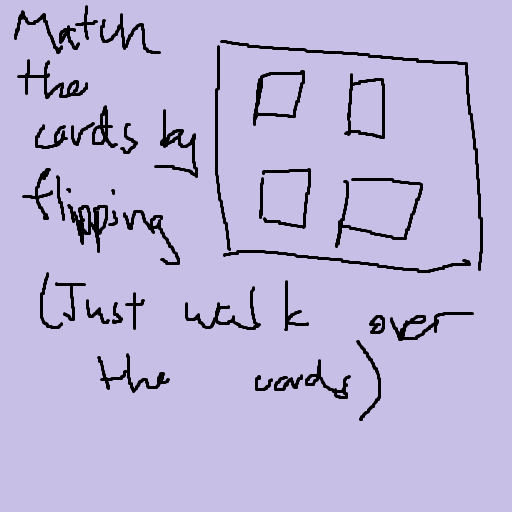 Match
the
cards by
flipping
(Just walk over
the cards)